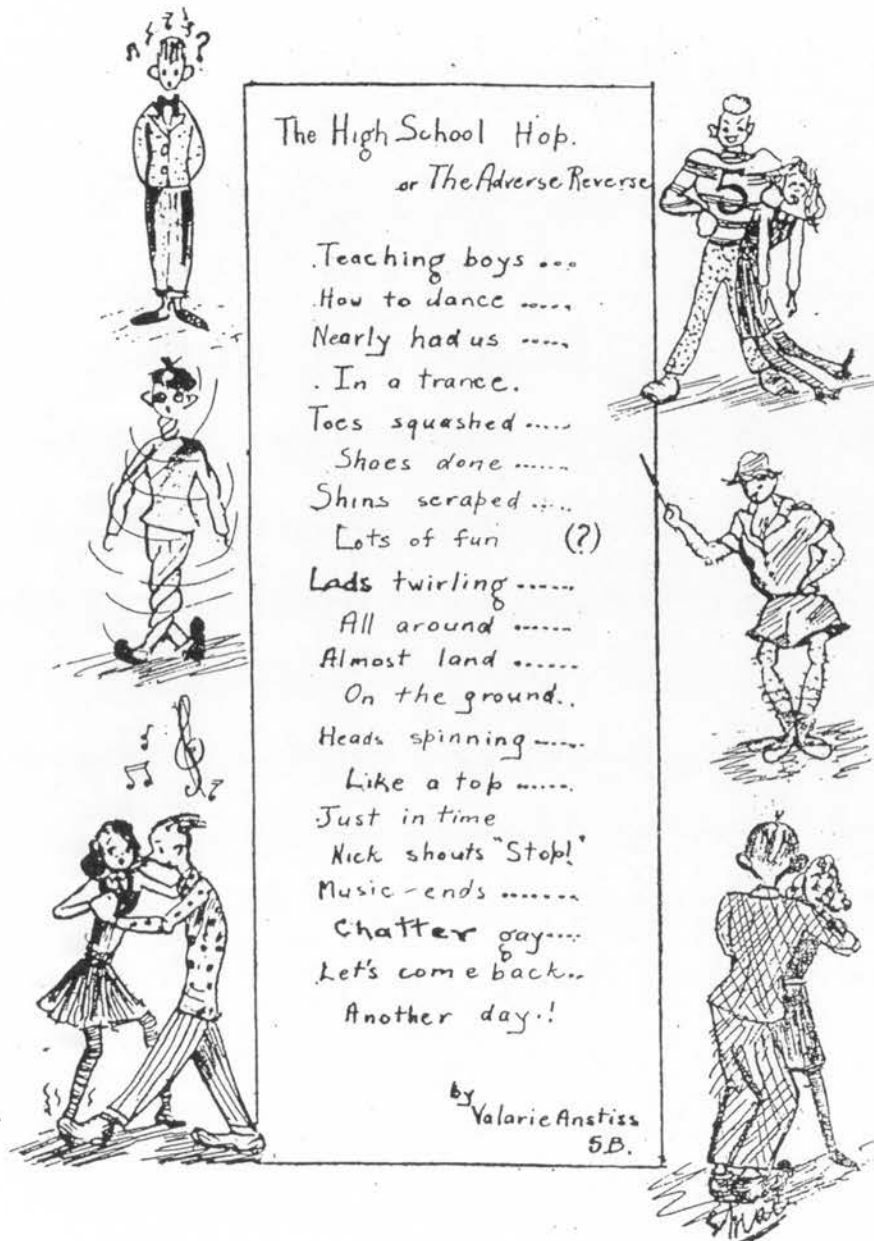 The High School Hop.
or The Adverse Reverse
5
.Teaching boys ...
How to dance .....
Nearly had us .....
. In a trance.
Toes squashed .....
Shoes done ......
Shins scraped .....
Lots of fun (?)
Lads twirling ......
All around .......
Almost land ......
On the ground..
Heads spinning .....
Like a top .......
Just in time
Nick shouts "Stop!"
Music - ends .......
Chatter gay....
Let's come back..
Another day.!
by
Valarie Anstiss
5B.